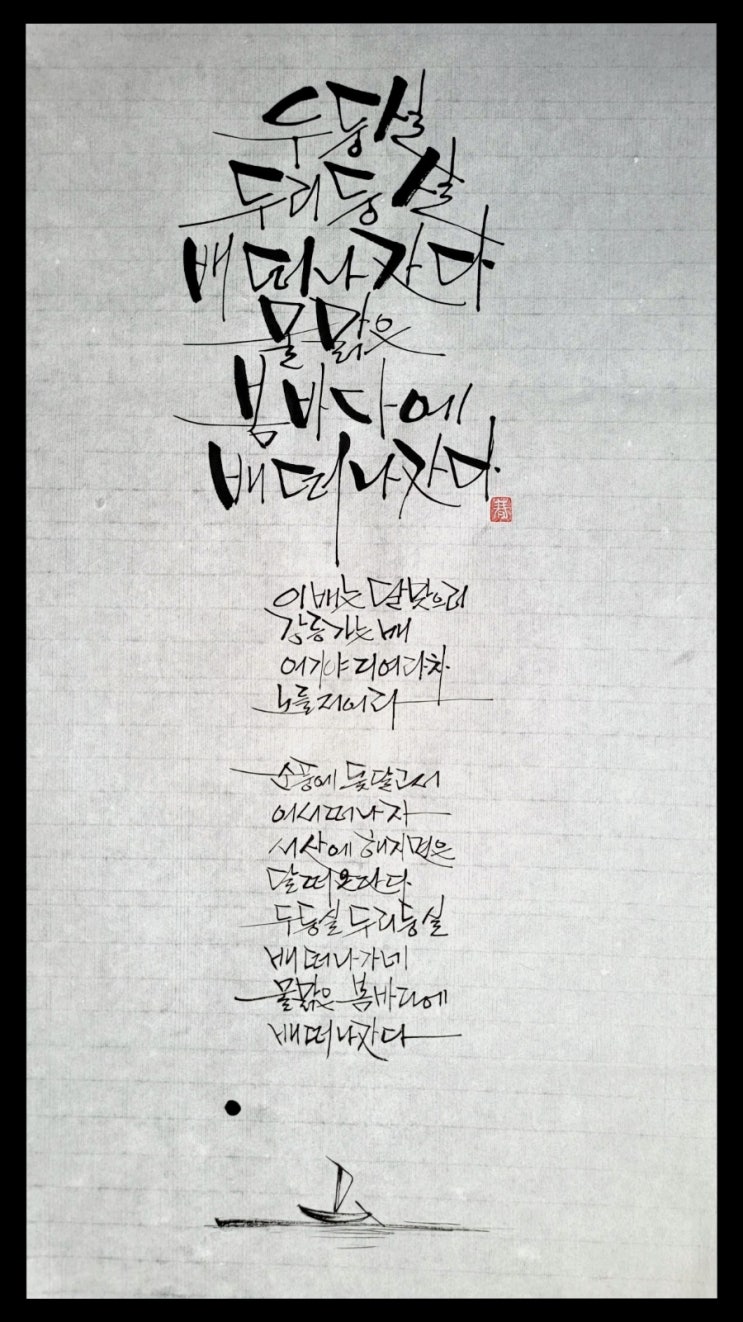 두둥실
두리둥실
배 떠나간다
물 맑은
봄바다에
배 떠나간다
이 배는 달맞으러
강릉 가는 배
어기야 디여라차
노를 저어라
순풍에 돛 달고서
어서 떠나자
서산에 해 지면은
달 떠 온단다
두둥실 두리둥실
배 떠나가네
물 맑은 봄바다에
배 떠나간다